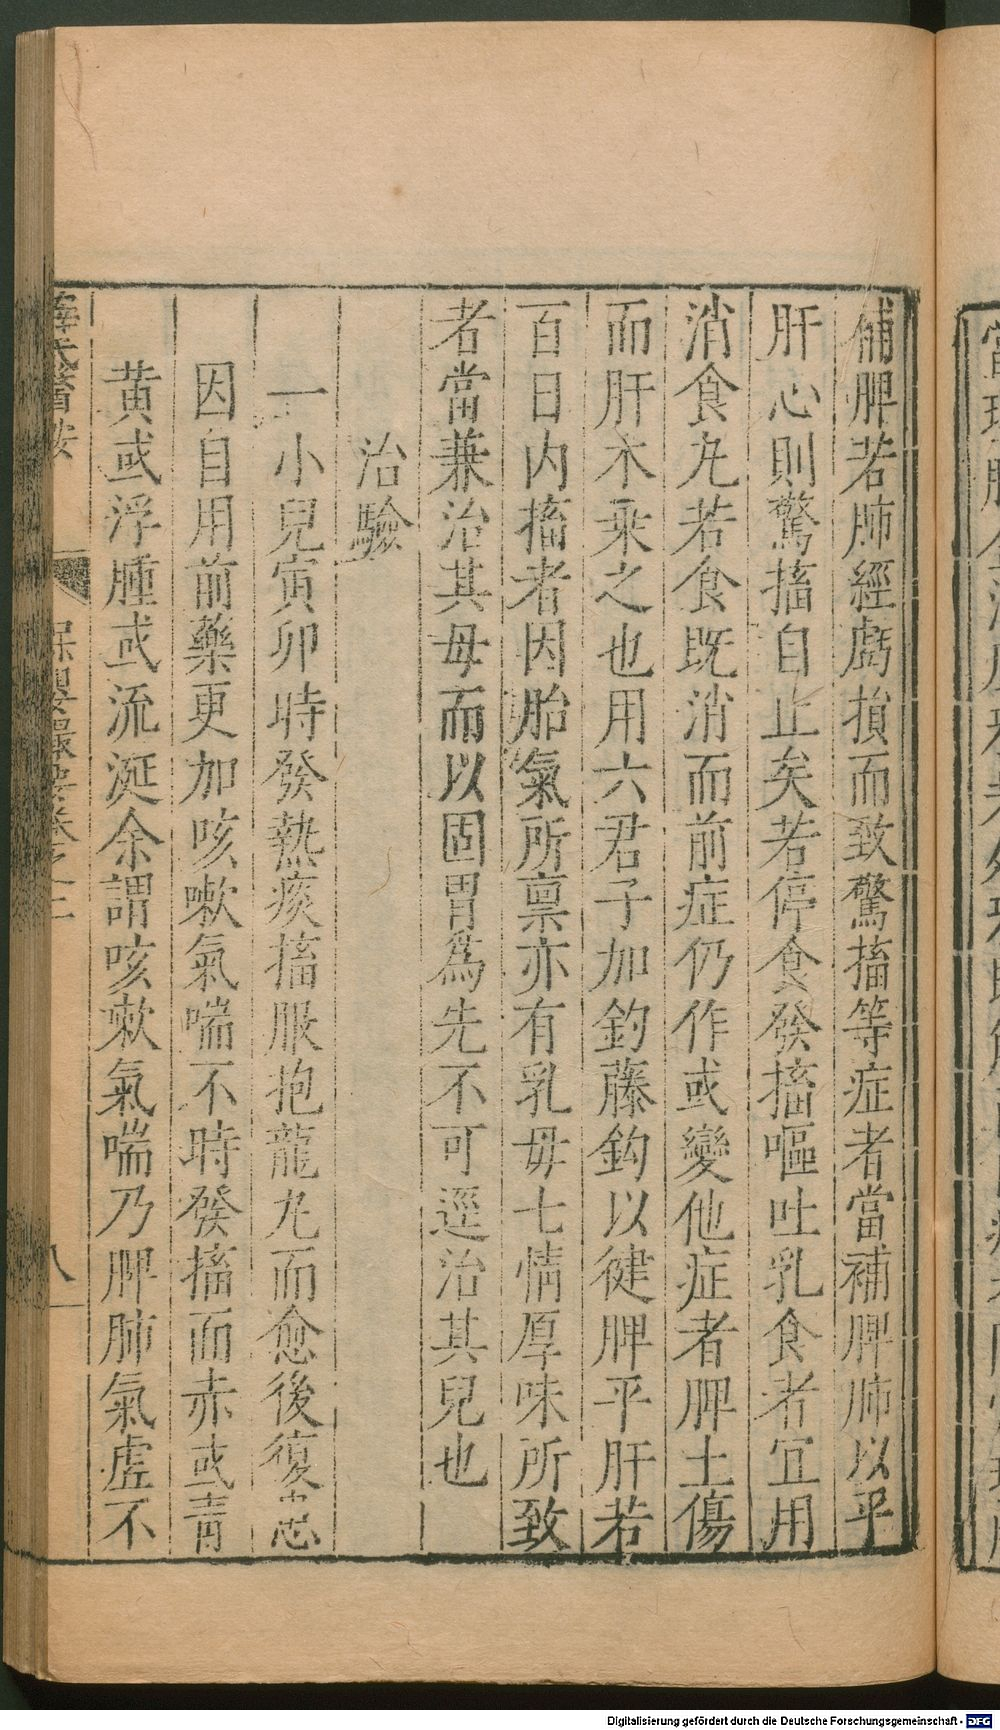 補脾若肺經虧損而致驚搐等症者當補脾肺以平
肝心則驚搐自止矣若停食發搐嘔吐乳食者宜用
消食丸若食既消而前症仍作或變他症者脾土傷
而肝木乘之也用六君子加釣藤鈎以健脾平肝若
百日内搐者因胎氣所禀亦有乳母七情厚味所致
者當兼治其母而以固胃為先不可逕治其兒也
治驗
一小兒寅卯時發熱痰搐服抱龍丸而愈後復患
因自用前藥更加咳嗽氣喘不時發搐面赤或青
黄或浮腫或流涎余謂咳嗽氣喘乃脾肺氣虚不
薛氏醫按 保嬰撮要卷之二 八
Digitalisierung gefördert durch die Deutsche Forschungsgemeinschaft - DFG